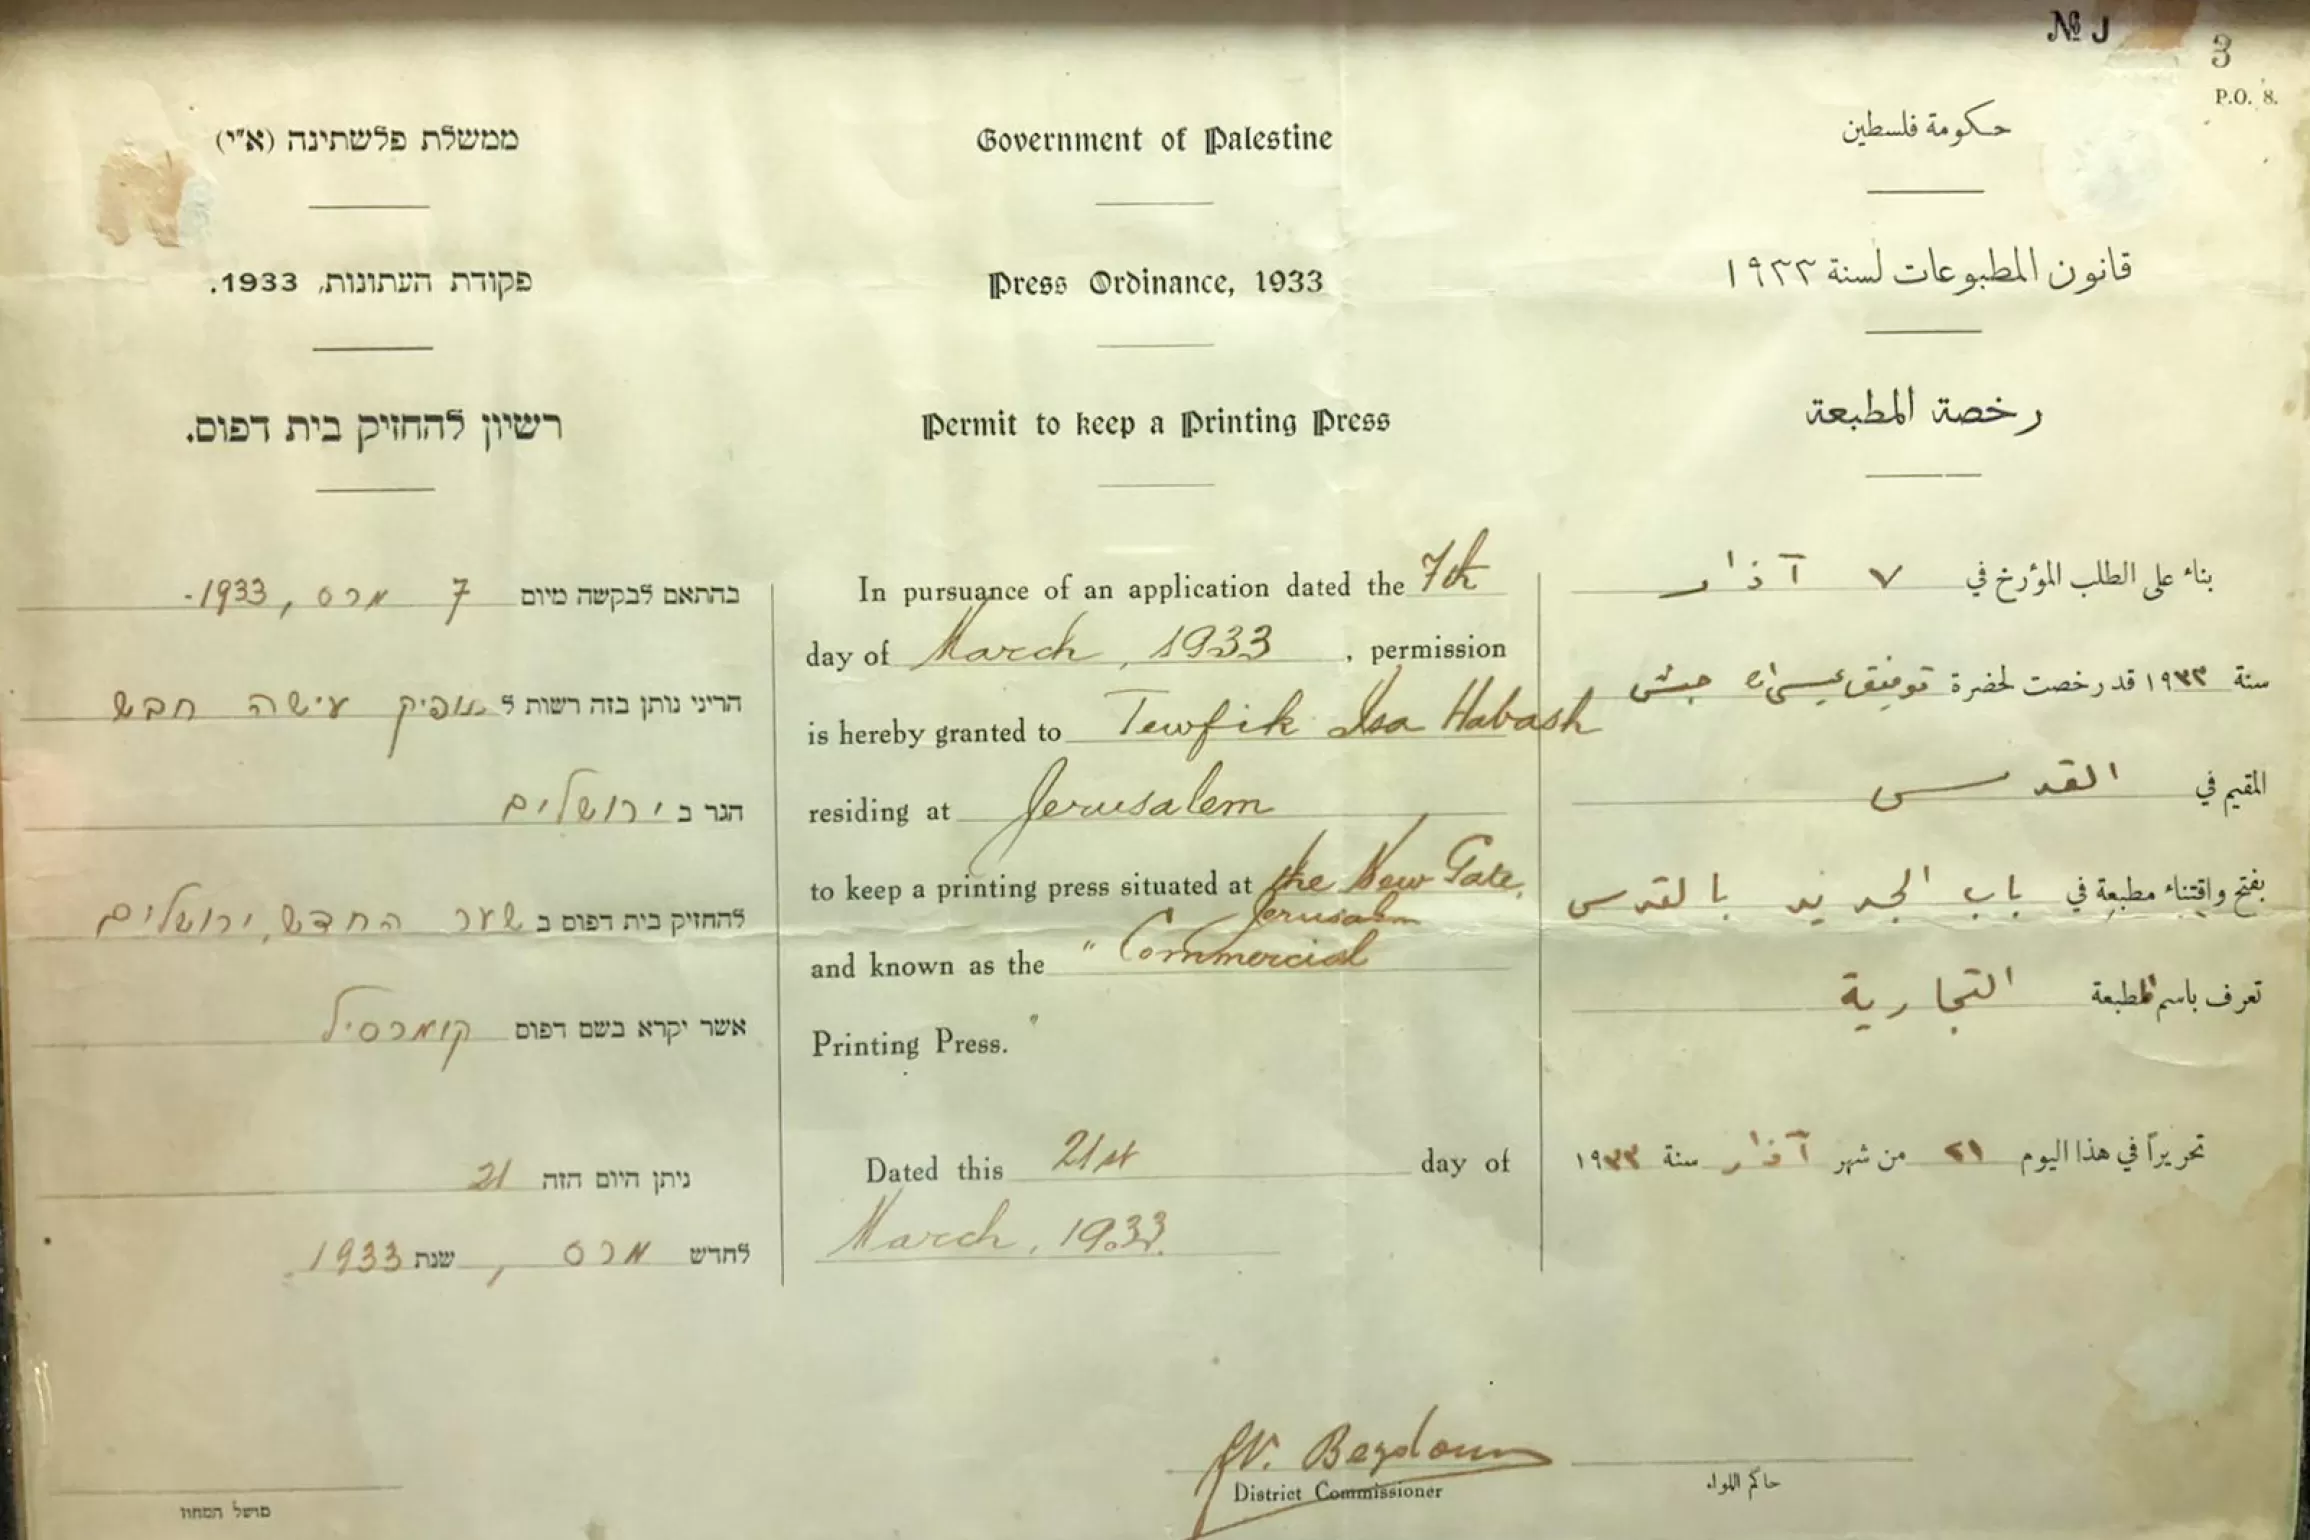 № J
3
P.O. 8.
ממשלת פלשתינה (א״י)
פקודת העתונות, 1933.
רשיון להחזיק בית דפוס.
בהתאם לבקשה מיום 7 מרס, 1933.-
הריני נותן בזה רשות ל תופיק עישה חבש
הגר ב ירושלים
להחזיק בית דפוס ב שער החדש, ירושלים
אשר יקרא בשם דפוס קומרסיל
ניתן היום הזה 21
לחדש מרס, שנת 1933.
מושל המחוז
Government of Palestine
Press Ordinance, 1933
Permit to keep a Printing Press
In pursuance of an application dated the 7th
day of March, 1933, permission
is hereby granted to Tewfik Isa Habash
residing at Jerusalem
to keep a printing press situated at the New Gate,
Jerusalem
and known as the "Commercial
Printing Press."
Dated this 21st day of
March, 1933.
District Commissioner
حكومة فلسطين
قانون المطبوعات لسنة ١٩٣٣
رخصة المطبعة
بناء على الطلب المؤرخ في ٧ آذار
سنة ١٩٣٣ قد رخصت لحضرة توفيق عيسى حبش
المقيم في القدس
بفتح واقتناء مطبعة في باب الجديد بالقدس
تعرف باسم المطبعة التجارية
تحريراً في هذا اليوم ٢١ من شهر آذار سنة ١٩٣٣
حاكم اللواء